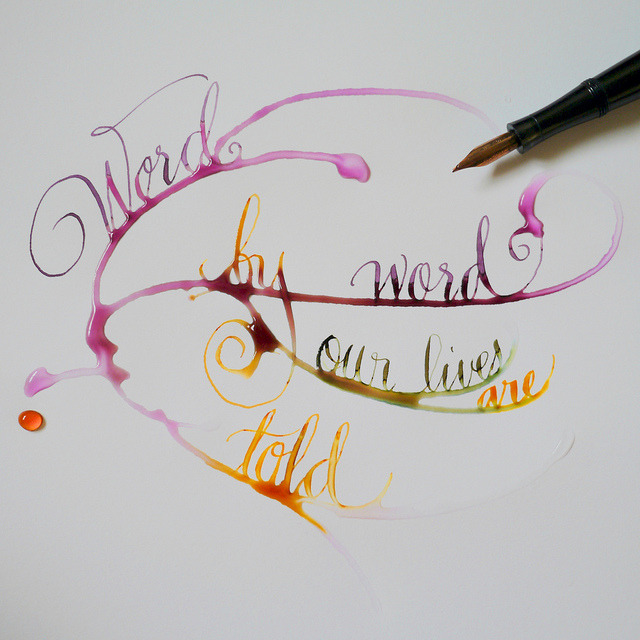 Word
by word
our lives
are
told